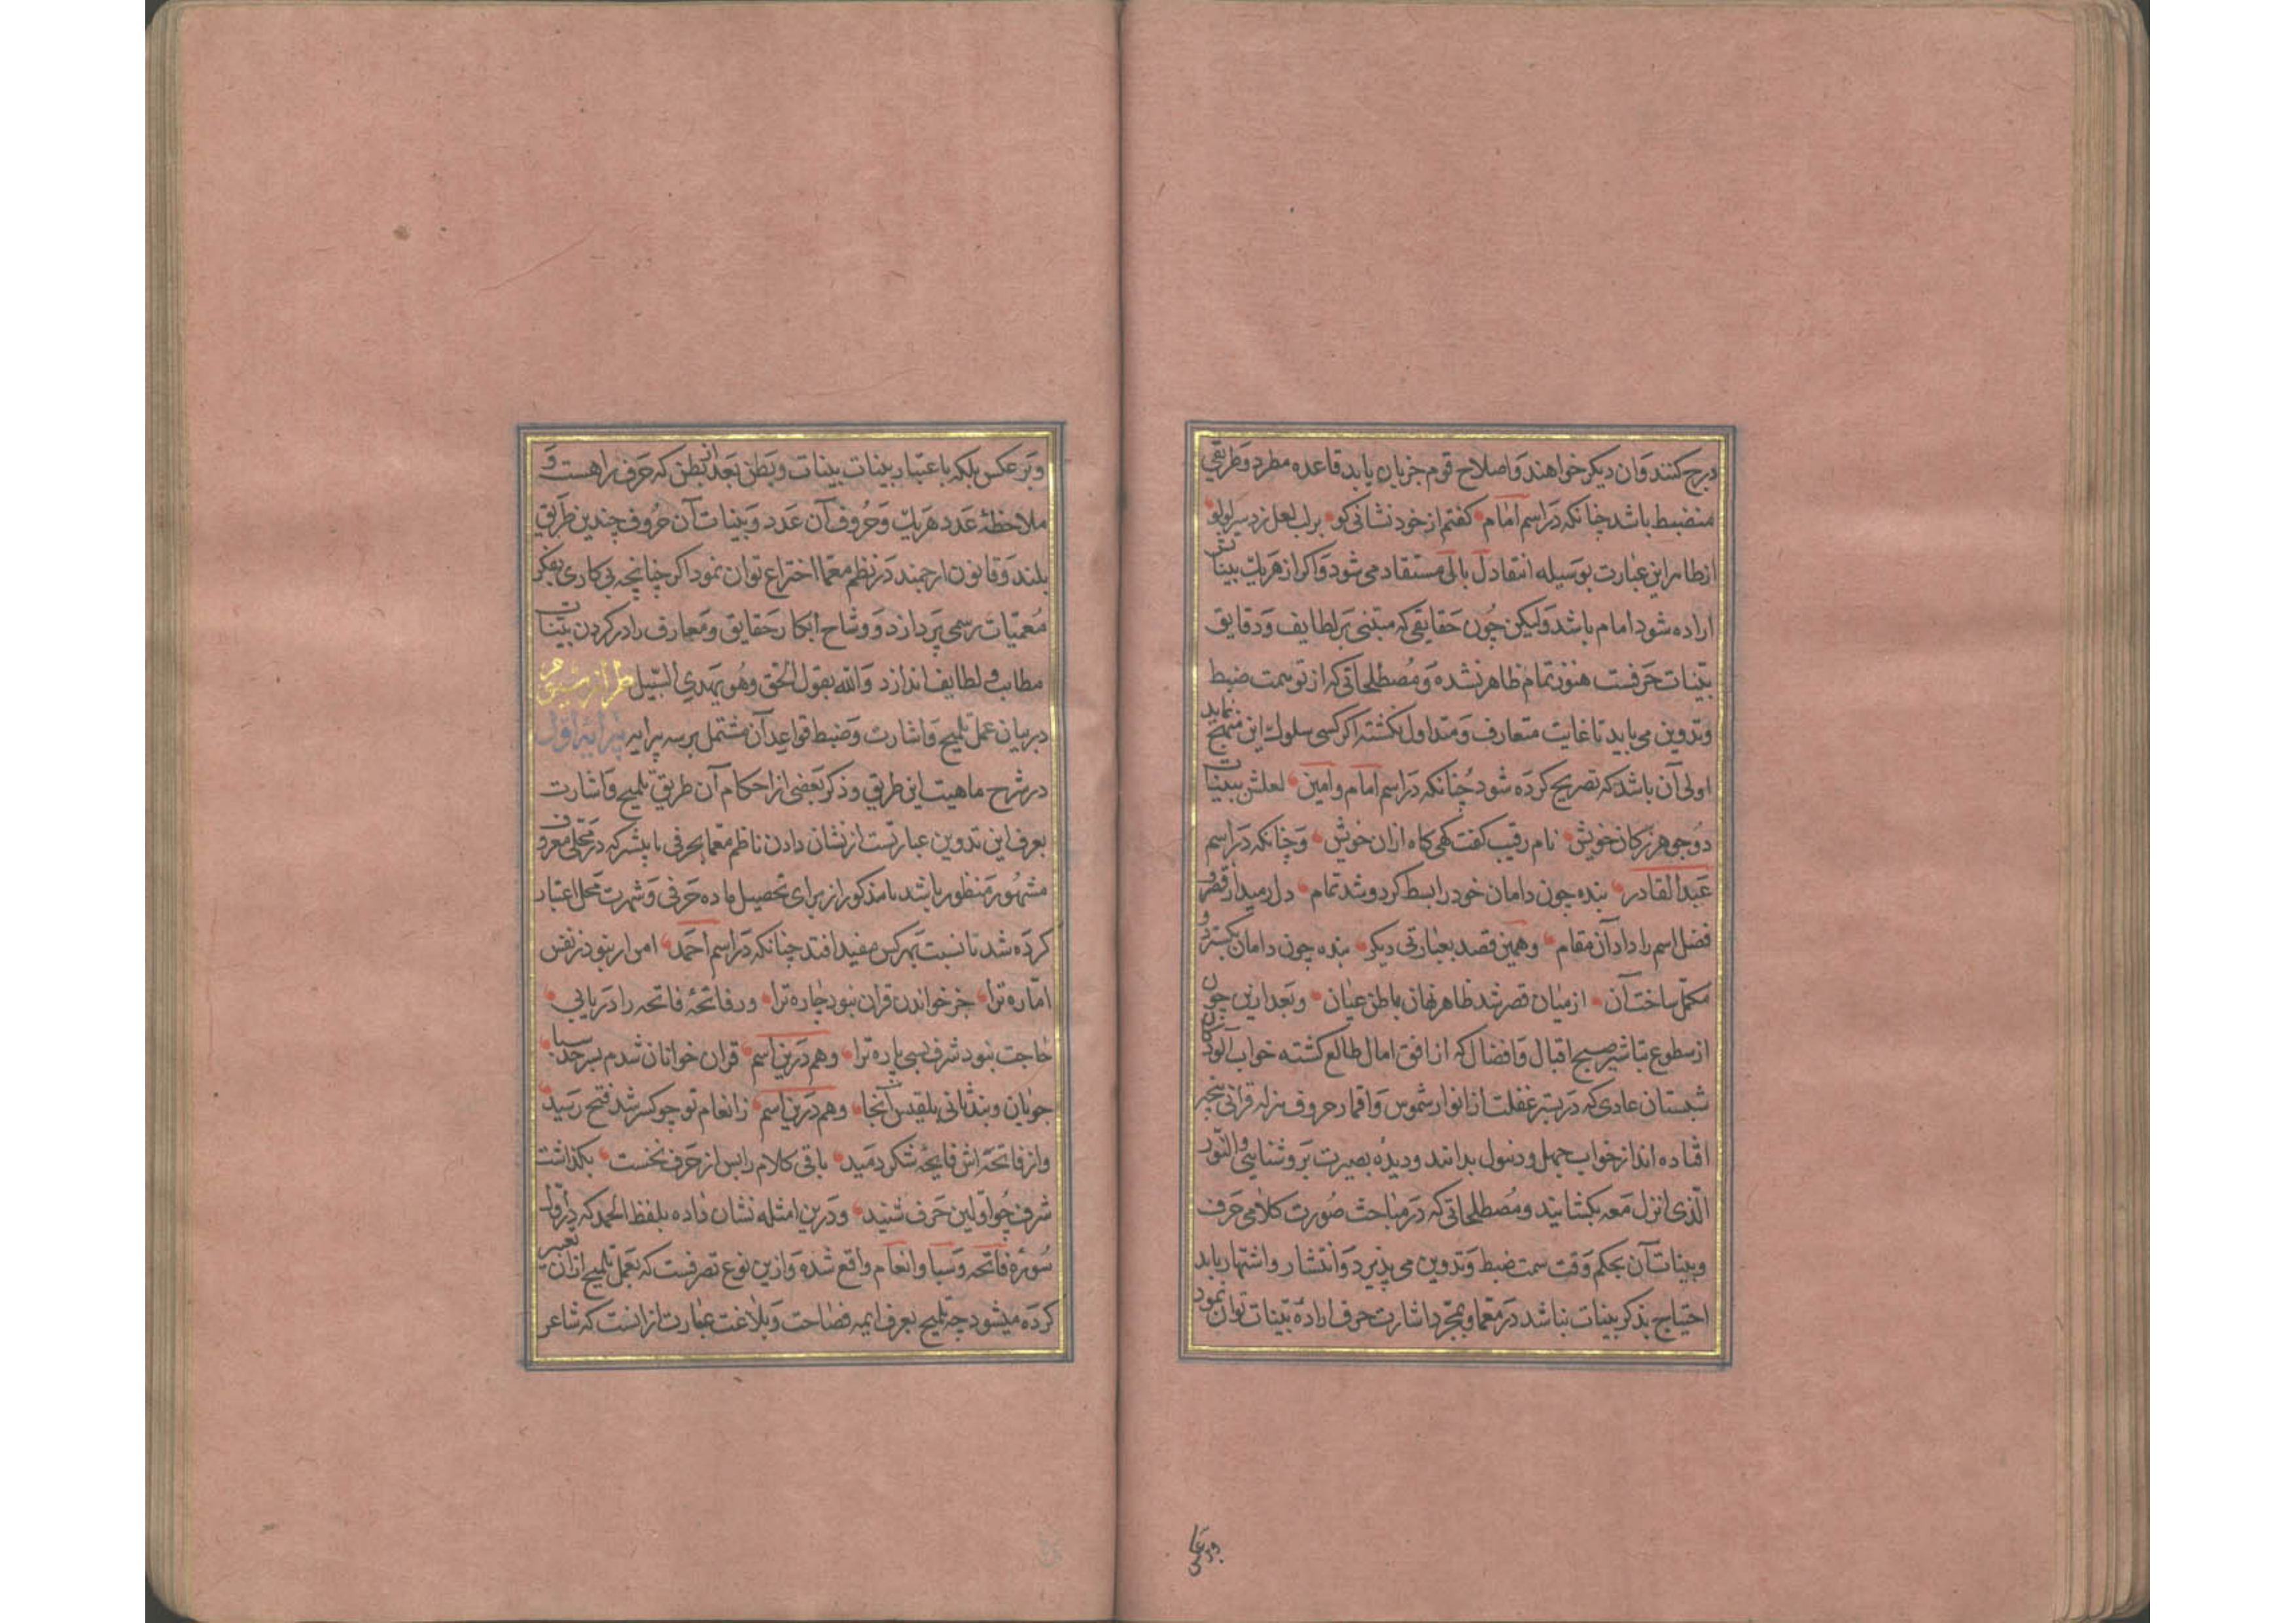 درج کنند وان دیکر خواهند واصلاح قوم جریان یابد قاعده مطرد وطریقی
منضبط باشد چنانکه در اسم امام کفتم از خود نشانی کو بر لب لعل زد سر لولو
از ظاهر این عبارت بوسیله انتقاد ل بالی مستفاد می شود واکر از هر یک بینات
اراده شود امام باشد ولیکن چون حقایقی که مبتنی بر لطایف ودقایق
بینات حرفست هنوز تمام ظاهر نشده ومصطلحاتی که از نو سمت ضبط
وتدوین می یابد تا غایت متعارف ومتداول نکشته اکر کسی سلوک این منهج نماید
اولی آن باشد که تصریح کرده شود چنانکه در اسم امام وامین لعلش ببینات
دو جوهر ز کان خویش نام رقیب کفت کهی کاه ازان خویش وچنانکه در اسم
عبد القادر بنده چون دامان خود را بسط کرد وشد تمام دل رمید از قصر و
فضل اسم را داد آن مقام وهمین قصد بعبارتی دیکر بنده چون دامان بکسترد و
مکمل ساخت آن از میان قصر شد ظاهر نهان باطن عیان وبعد ازین چون
از سطوع تباشیر صبح اقبال وافضال که از افق امال طالع کشته خواب آلودکان
شبستان عادی که در بستر غفلت از انوار شموس واقمار حروف منزله قرانی بیخبر
افتاده اند از خواب جهل وذهول بدانند ودیده بصیرت بروشنایی والنور
الذی انزل معه بکشایند ومصطلحاتی که در مباحث صورت کلامی حرف
وبینات آن بحکم وقت سمت ضبط وتدوین می پذیرد وانتشار واشتهار یابد
احتیاج بذکر بینات نباشد در معما وبمجرد اشارت حرف اراده بینات توان نمود
وبر عکس بلکه باعتبار بینات بینات وبطن بعد از بطن که حرف راهست و
ملاحظه عدد هر یک وحروف آن عدد وبینات آن حروف چندین طریق
بلند وقانون ارجمند در نظم معما اختراع توان نمود اکر چنانچه بی کاری بفکر
معمیات رسمی پردازد ووشاح ابکار حقایق ومعارف را در کردن بنات
مطایب ولطایف اندازد والله یقول الحق وهو یهدی السبیل طراز سیم از حرز
در بیان عمل تلمیح واشارت وضبط قواعد آن مشتمل بر سه پرایه پرایه اول
در شرح ماهیت این طریق وذکر بعضی از احکام آن طریق تلمیح واشارت
بعرف این تدوین عبارتست از نشان دادن ناظم معما بحرفی یا بیشتر که در محلی معروف
مشهور منظور باشد یا مذکور از برای تحصیل ماده حرفی وشهرت محل اعتبار
کرده شد تا نسبت بهر کس مفید افتد چنانکه در اسم احمد امر ار نبود ز نفس
اماره ترا جز خواندن قران نبود چاره ترا ور فاتحه فاتحه را دریابی
حاجت نبود شرف بسی پاره ترا وهم درین اسم قران خوانان شدم بسر حد سبا
جویان وبند ثانی بلقیس آنجا وهم درین اسم ز انعام تو چو کسر شد فتح رسید
واز فاتحه اش فایحه شکر دمید باقی کلام را پس از حرف نخست بکذاشت
شرف چو اولین حرف شنید ودرین امثله نشان داده بلفظ الحمد که در اول
سوره فاتحه وسبا وانعام واقع شده وازین نوع تصرفست که بعمل تلمیح ازان تعبیر
کرده میشود چه تلمیح بعرف ایمه فصاحت وبلاغت عبارت ازانست که شاعر
وبر عکس